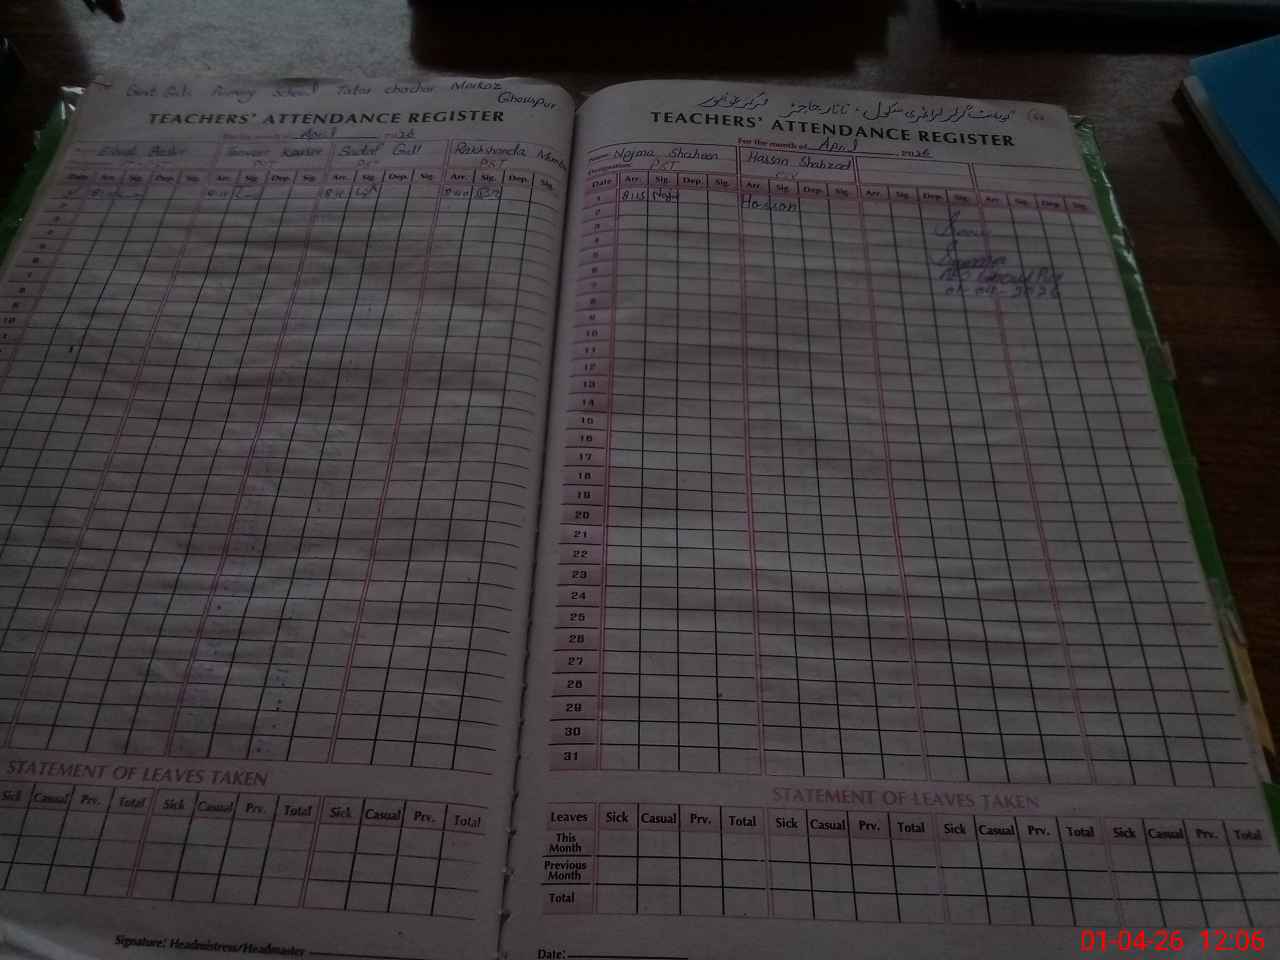 Govt Girls Primary School Tatar chachar Markaz
Ghouspur
TEACHERS' ATTENDANCE REGISTER
For the month of April 2026
Tanveer Kausar
PST
Sadaf Gull
PST
Rakhshanda Mumtaz
PST
Date Arr. Sig. Dep. Sig. Arr. Sig. Dep. Sig. Arr. Sig. Dep. Sig. Arr. Sig. Dep. Sig.
STATEMENT OF LEAVES TAKEN
Sick Casual Prv. Total Sick Casual Prv. Total Sick Casual Prv. Total
Signature: Headmistress/Headmaster
گورنمنٹ گرلز پرائمری سکول تاتار چاچڑ مرکز غوثپور
TEACHERS' ATTENDANCE REGISTER
For the month of April 2026
Name Najma Shaheen
Hassan Shahzad
Designation PST
Date Arr. Sig. Dep. Sig. Arr. Sig. Dep. Sig. Arr. Sig. Dep. Sig. Arr. Sig. Dep. Sig.
1 8:15 Hassan
2
3
4
5
6
7
8
9
10
11
12
13
14
15
16
17
18
19
20
21
22
23
24
25
26
27
28
29
30
31
01-04-2026
STATEMENT OF LEAVES TAKEN
Leaves Sick Casual Prv. Total Sick Casual Prv. Total Sick Casual Prv. Total Sick Casual Prv. Total
This Month
Previous Month
Total
Date:
01-04-26 12:06